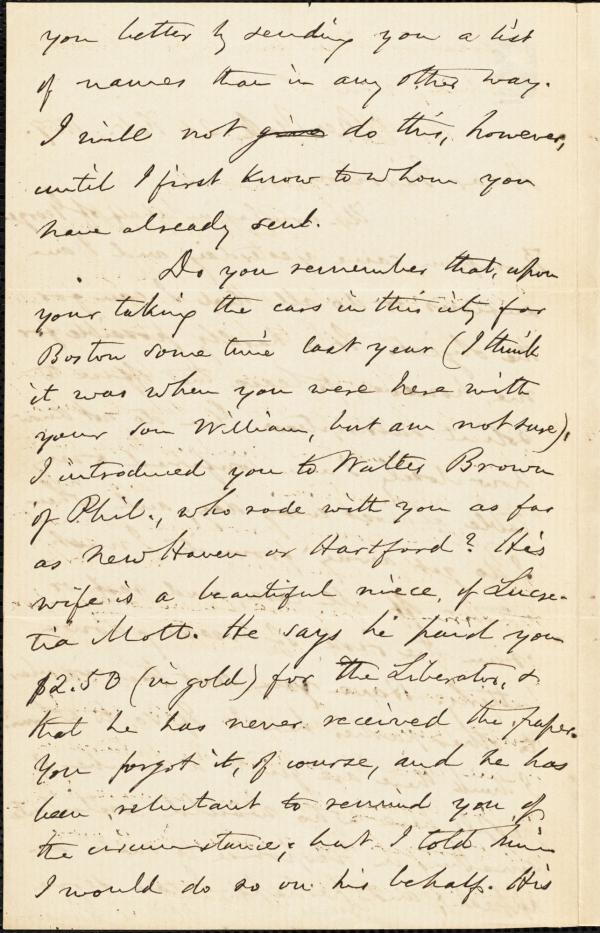 you better by sending you a list
of names than in any other way.
I will not give do this, however,
until I first know to whom you
have already sent.
Do you remember that, upon
your taking the cars in this city for
Boston some time last year (I think
it was when you were here with
your son William, but am not sure),
I introduced you to Walter Brown
of Phil., who rode with you as far
as New Haven or Hartford? His
wife is a beautiful niece, of Lucre-
tia Mott. He says he paid you
$2.50 (in gold) for the Liberator, &
that he has never received the paper.
You forgot it, of course, and he has
been reluctant to remind you of
the circumstance; but I told him
I would do so on his behalf. His